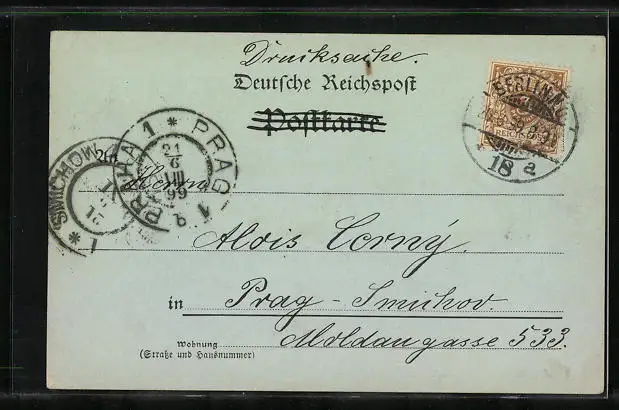 Drucksache.
Deutsche Reichspost
Postkarte
BERLIN
REICHS
18 a
PRAHA 1 * PRAG 1
21
6
VIII
99
SMICHOW
1
Herrn
Alois Černý.
in Prag - Smichov.
Moldaugasse 533.
Wohnung
(Straße und Hausnummer)